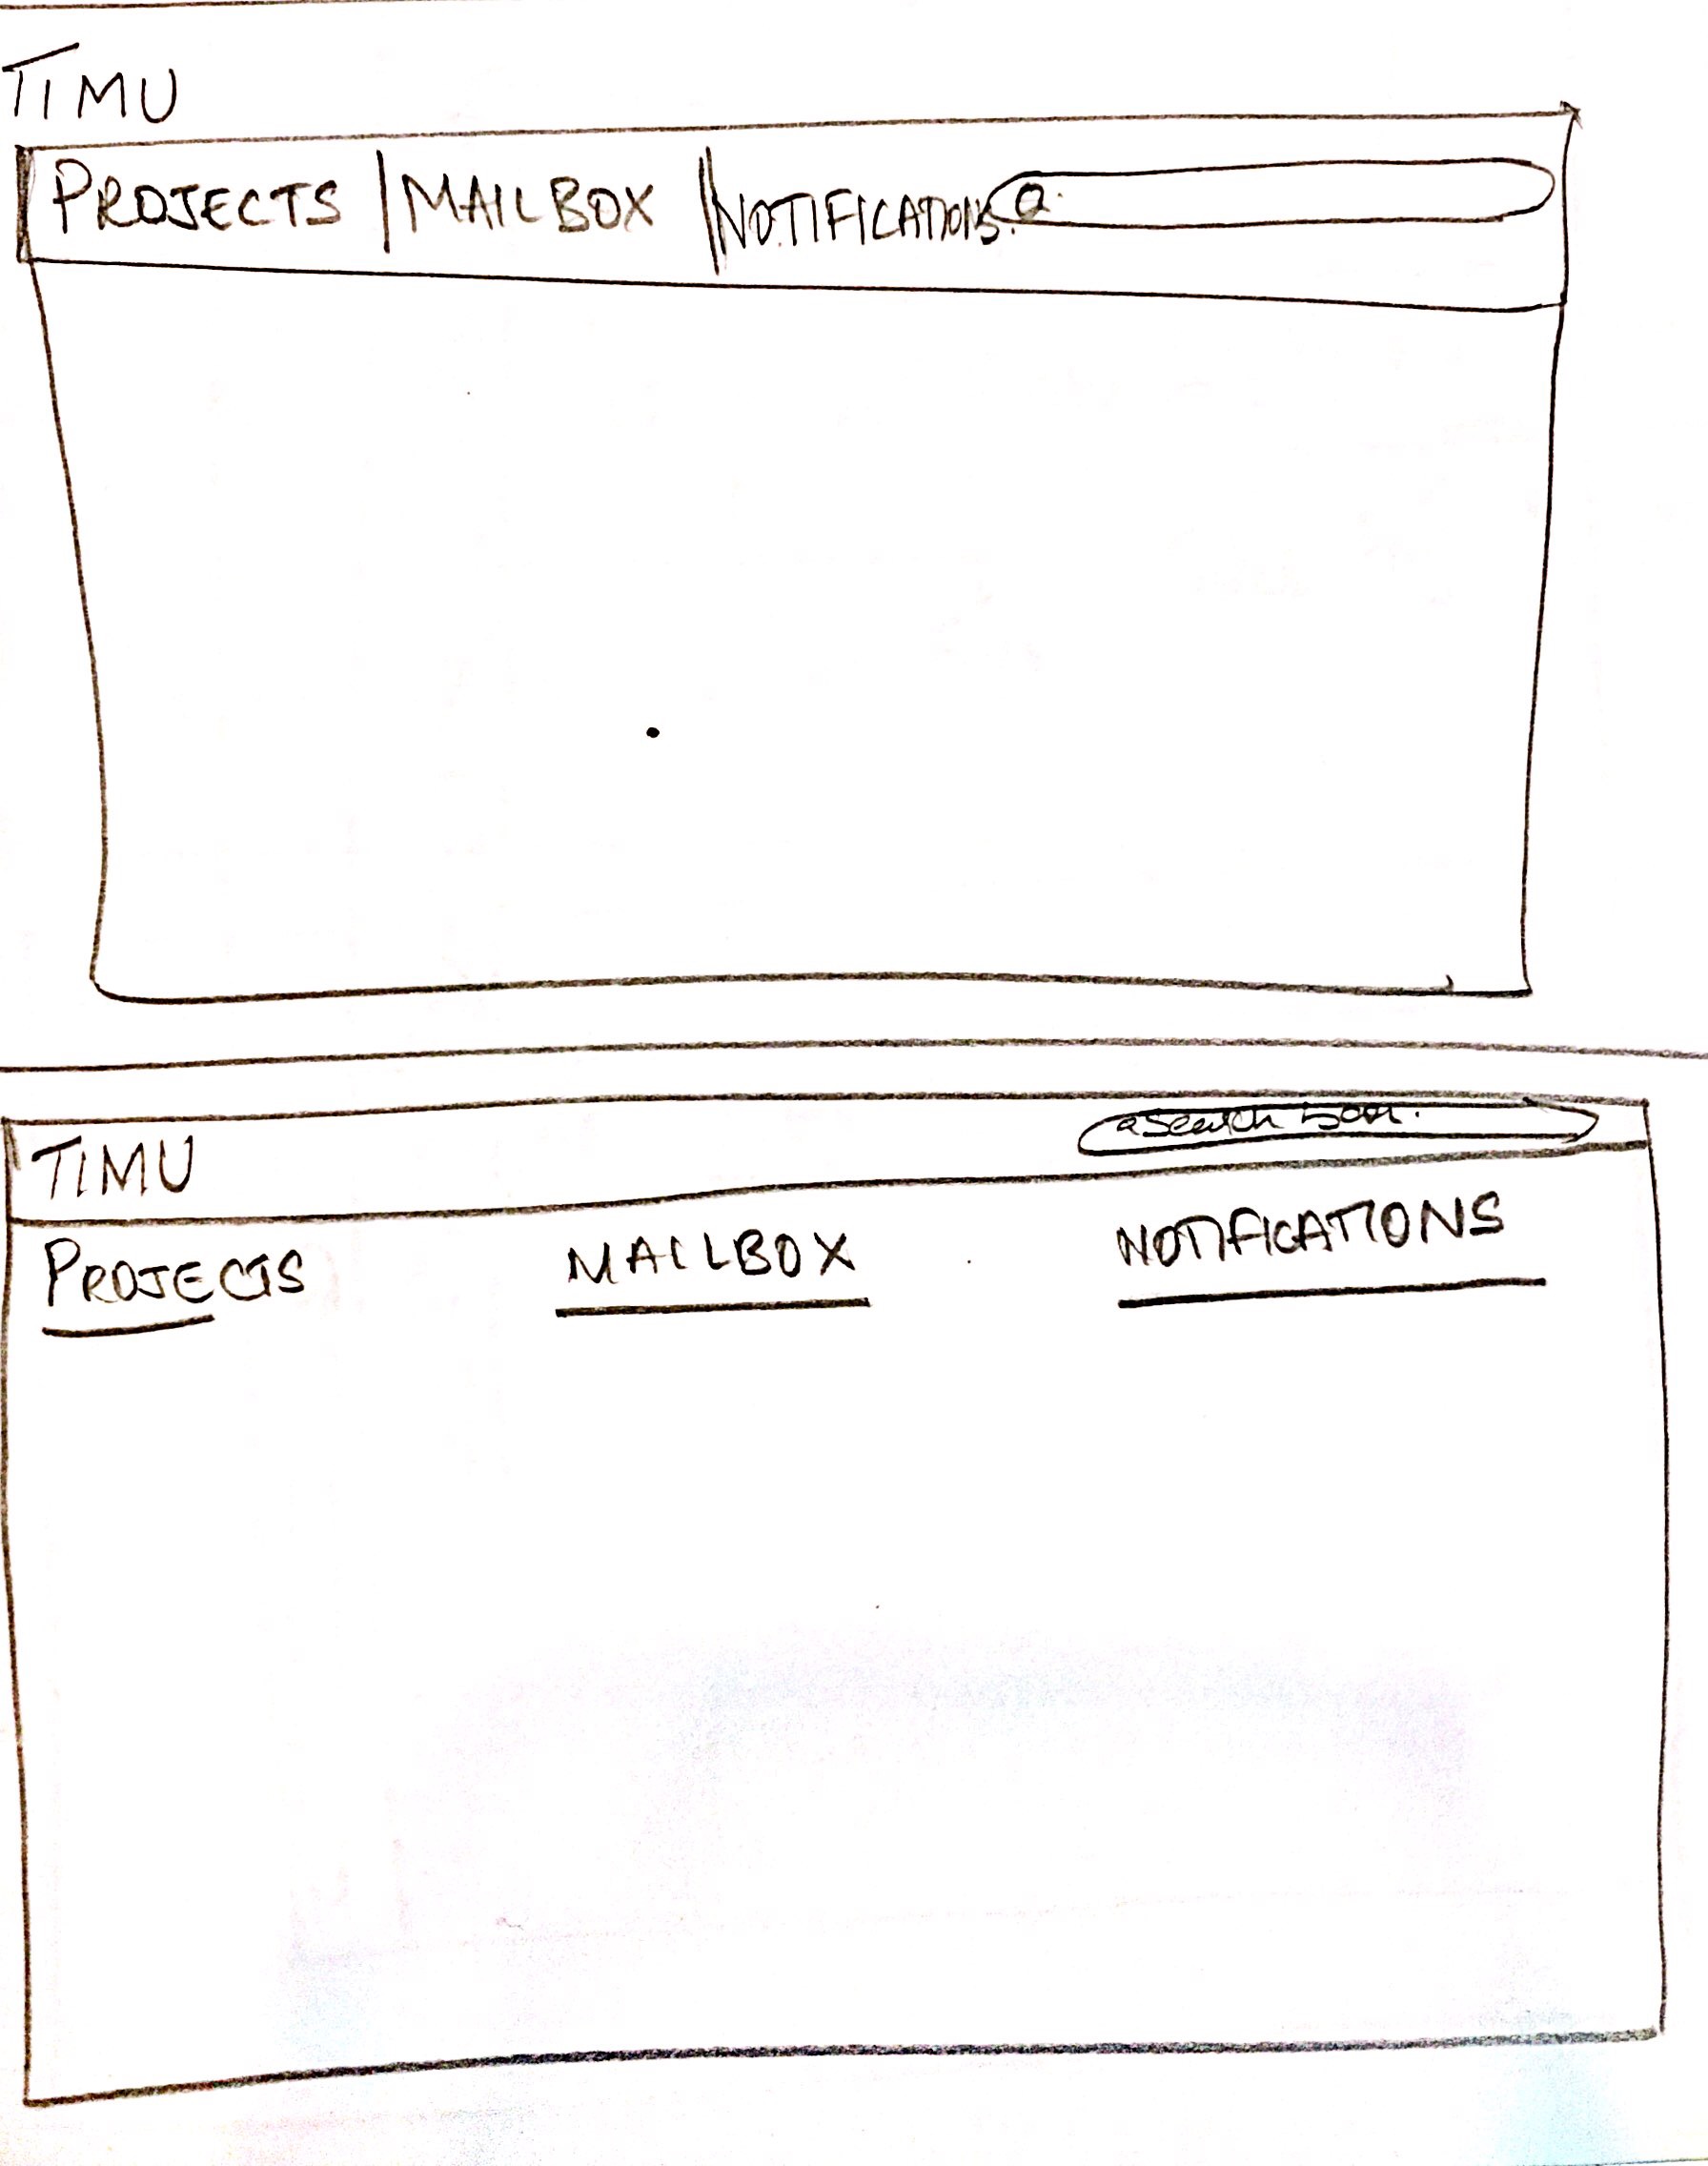 TIMU
PROJECTS | MAILBOX || NOTIFICATIONS.
Search bar.
TIMU
PROJECTS MAILBOX NOTIFICATIONS